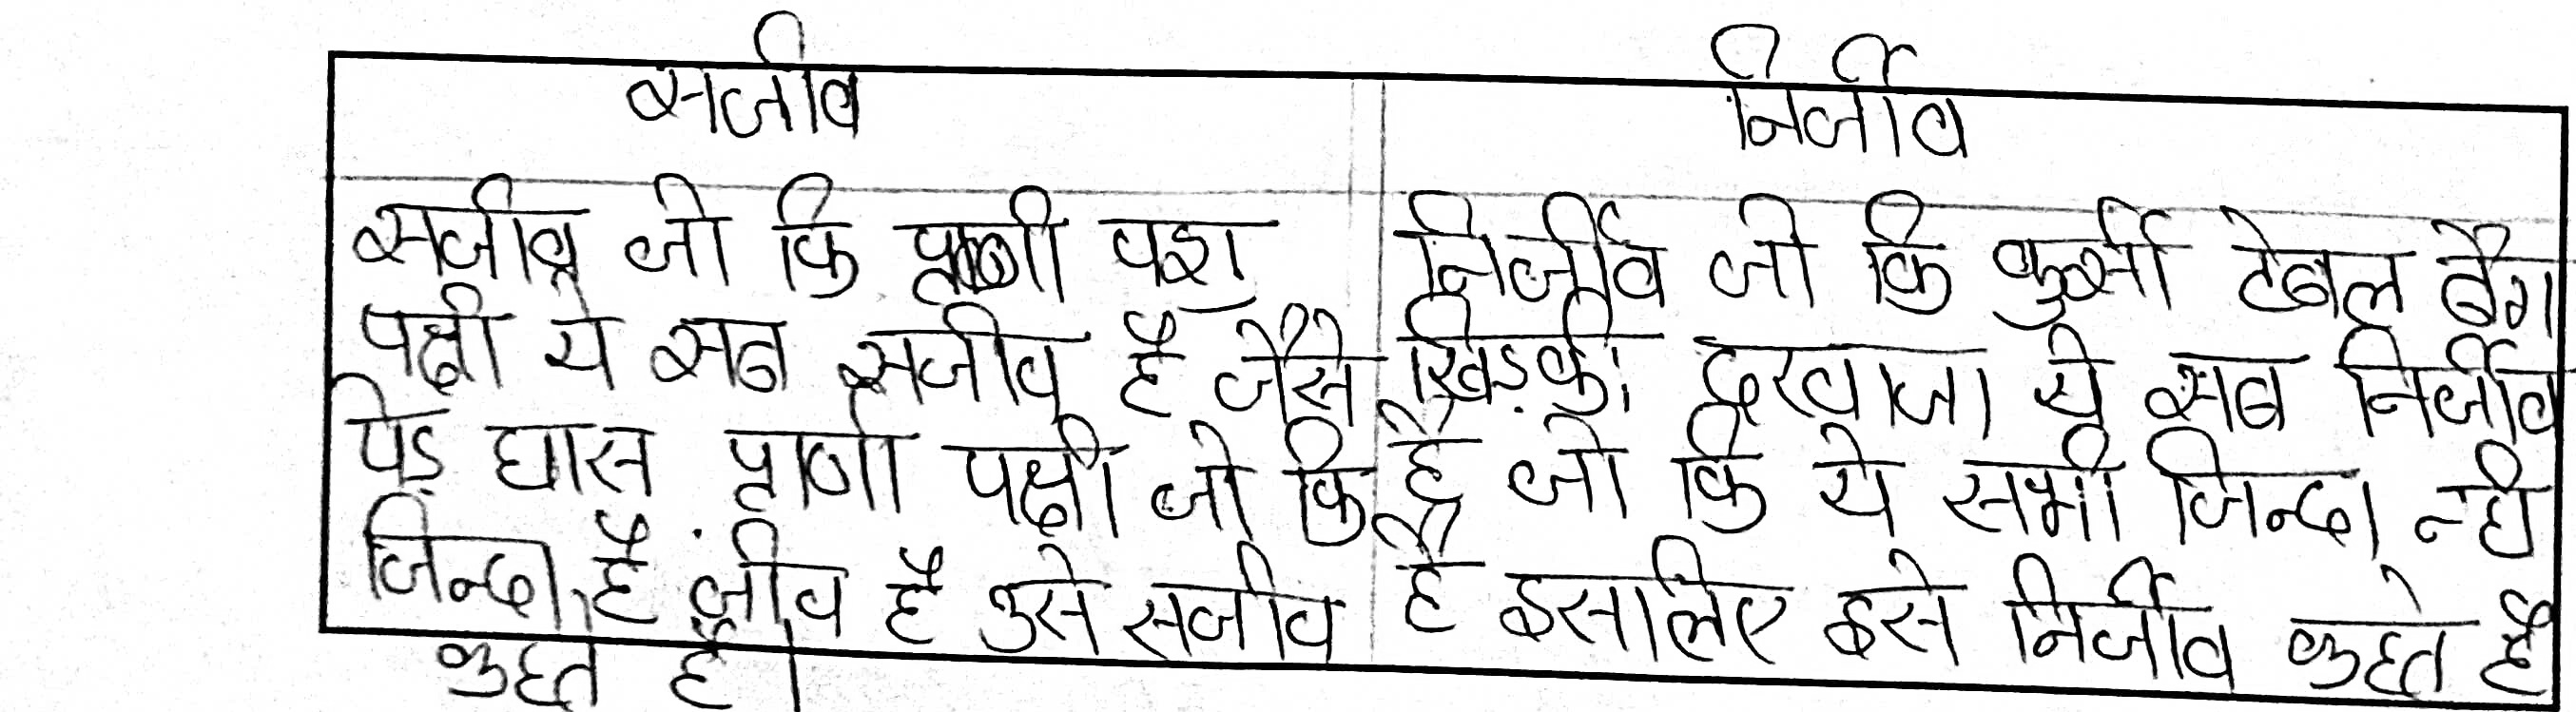 सजीव
सजीव जो कि प्राणी पशु
पक्षी ये सब सजीव है जैसे
पेड़ घास प्राणी पक्षी जो कि
जिन्दा है जीव है उसे सजीव
कहते है।
निर्जीव
निर्जीव जो कि कुर्सी टेबल बैग
खिड़की दरवाजा ये सब निर्जीव
है जो कि ये सभी जिन्दा न्ही
है इसालिए इसे निर्जीव कहते है